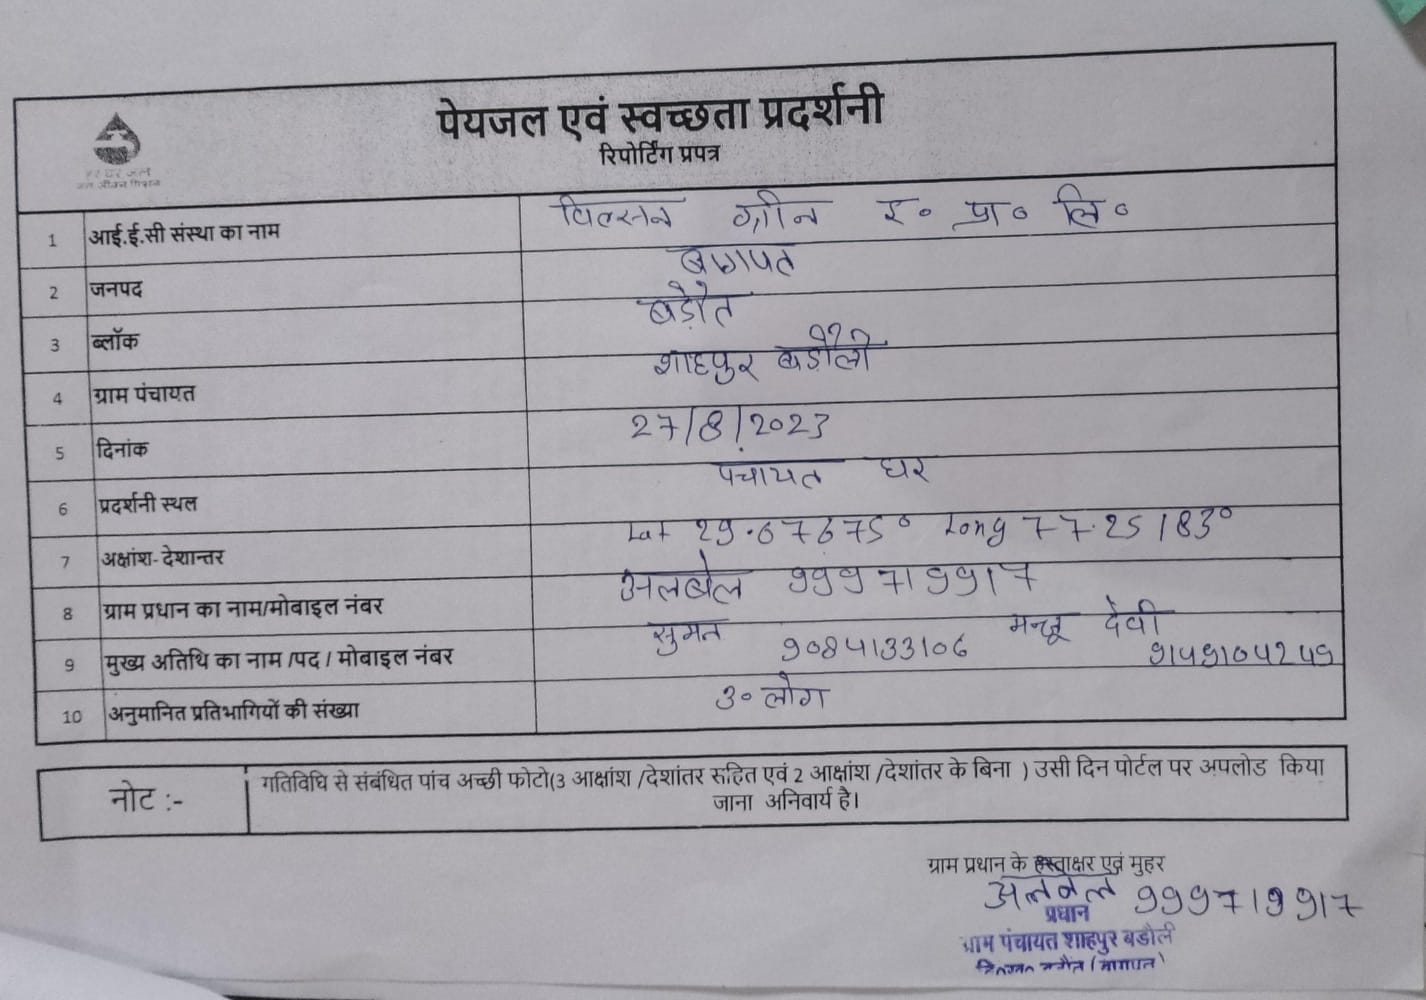 पेयजल एवं स्वच्छता प्रदर्शनी
रिपोर्टिंग प्रपत्र
हर घर जल
जल जीवन मिशन
1 आई.ई.सी संस्था का नाम विल्सन ग्रीन इ० प्रा० लि०
2 जनपद बागपत
3 ब्लॉक बड़ौत
4 ग्राम पंचायत शाहपुर बडौली
5 दिनांक 27/8/2023
6 प्रदर्शनी स्थल पंचायत घर
7 अक्षांश-देशान्तर Lat 29.67675° Long 77.25183°
8 ग्राम प्रधान का नाम/मोबाइल नंबर अलबेल 9997199917
9 मुख्य अतिथि का नाम /पद / मोबाइल नंबर सुमन 9084133106 मन्जू देवी 9149104249
10 अनुमानित प्रतिभागियों की संख्या 30 लोग
नोट :- गतिविधि से संबंधित पांच अच्छी फोटो(3 आक्षांश /देशांतर सहित एवं 2 आक्षांश /देशांतर के बिना ) उसी दिन पोर्टल पर अपलोड किया
जाना अनिवार्य है।
ग्राम प्रधान के हस्ताक्षर एवं मुहर
अलबेल 9997199917
प्रधान
ग्राम पंचायत शाहपुर बडौली
बड़ौत (बागपत)